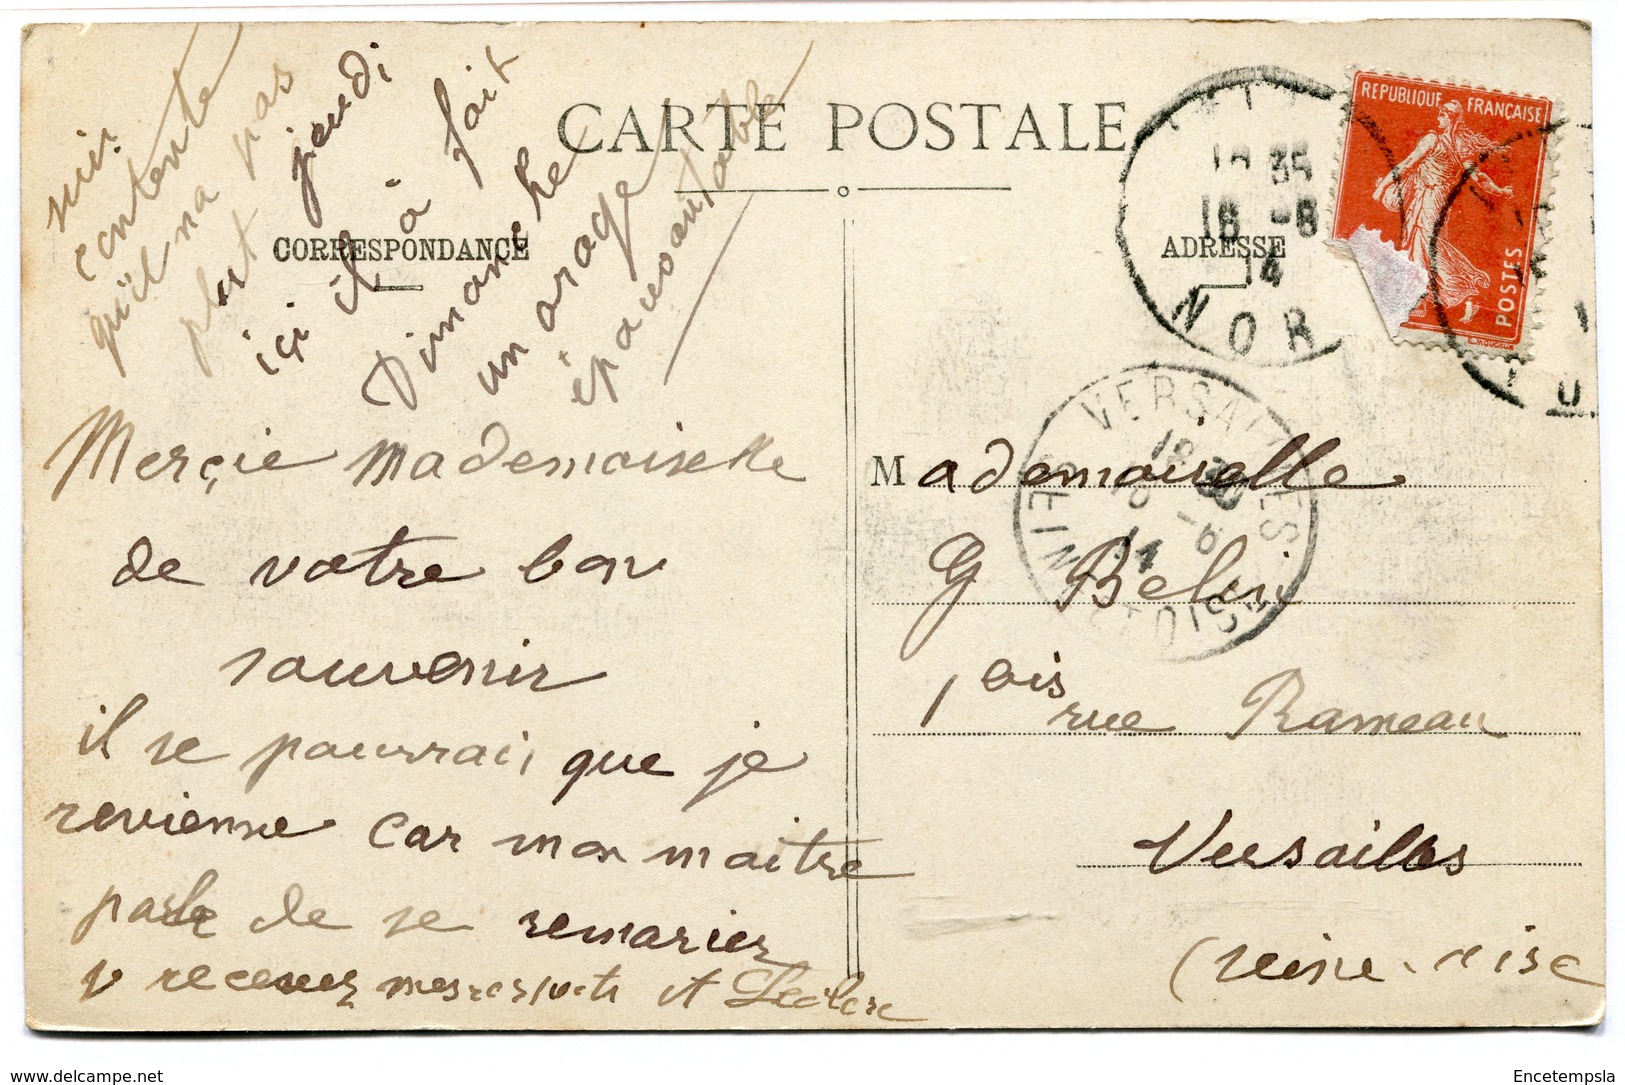 CARTE POSTALE
CORRESPONDANCE
ADRESSE
Merçie Mademoiselle
de votre bon
souvenir
il se pourrais que je
revienne car mon maitre
parle de se remarier
recevez mes respects A Leclere
suis
contente
qu'il na pas
plut jeudi
ici il à fait
Dimanche
un orage
épouvantable
Mademoiselle
G Belin
1 bis rue Rameau
Versailles
(Seine-oise
REPUBLIQUE FRANÇAISE
POSTES
18 35
16 -6
14
NOR
VERSAILLES
18 30
16 -6
14
www.delcampe.net
Encetempsla